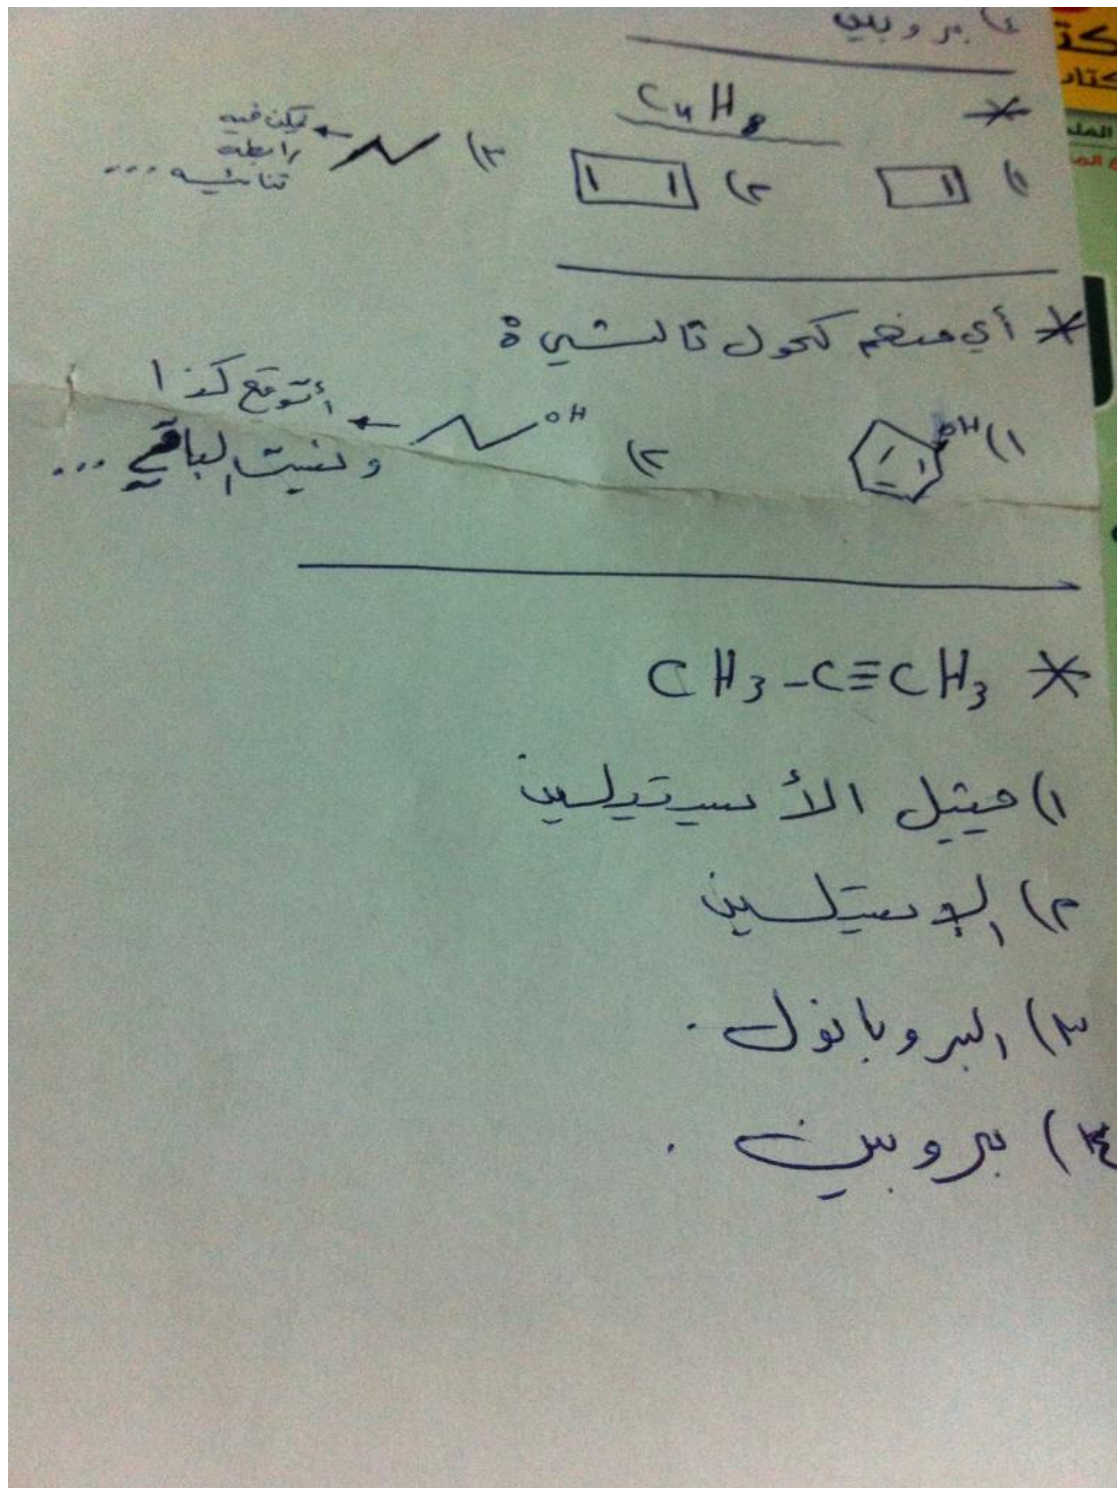 ٤) بروبين
* C4H8
١)
٢)
٣) ← يمكن فيه
رابطه
ثنائيه ...
* أي منهم كحول ثالثي :
١) OH
٢) OH ← أتوقع كذا
ونسيت الباقي ...
* CH3-C≡CH3
١) ميثيل الأسيتيلين
٢) الإستيلين
٣) البروبانول .
٤) بروبين .